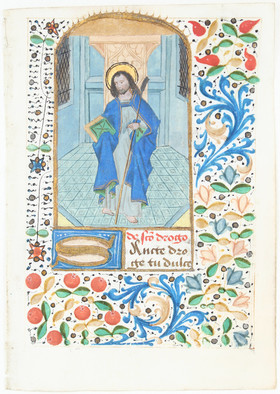 de sco drogo
Ancte dro
ge tu dulce